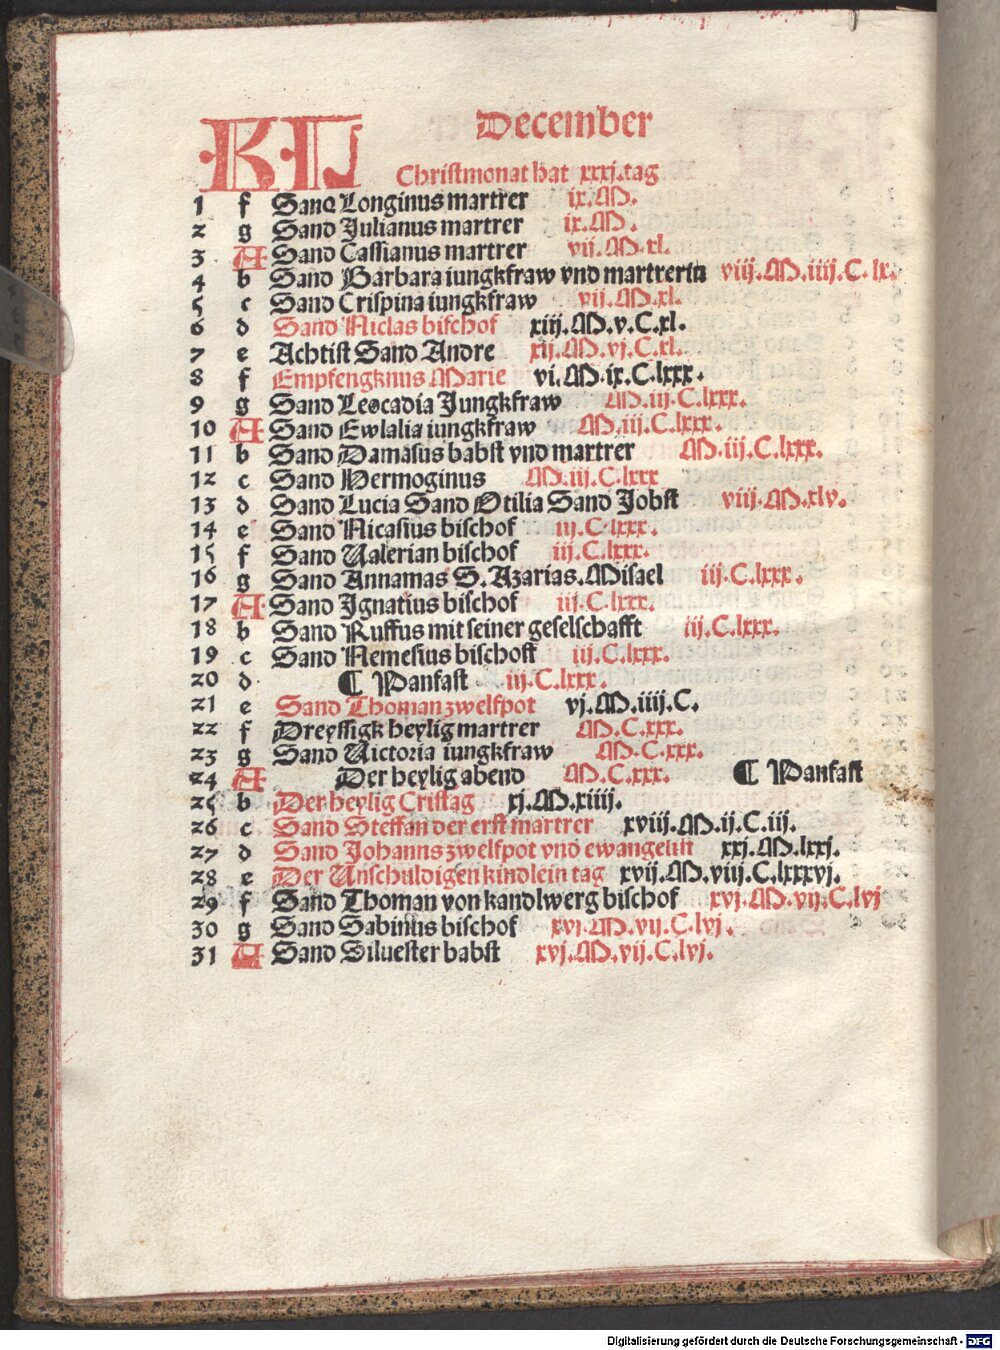 KL December
Christmonat hat xxxj.tag
1 f Sand Longinus martrer ix.M.
2 g Sand Julianus martrer ix.M.
3 A Sand Cassianus martrer vii.M.xl.
4 b Sand Barbara iungkfraw vnd martrerin viij.M.iiij.C.lx.
5 c Sand Crispina iungkfraw vij.M.xl.
6 d Sand Niclas bischof xiij.M.v.C.xl.
7 e Achtist Sand Andre xij.M.vj.C.xl.
8 f Empfengknus Marie vi.M.ix.C.lxxx.
9 g Sand Leocadia Jungkfraw M.iij.C.lxxx.
10 A Sand Ewlalia iungkfraw M.iij.C.lxxx.
11 b Sand Damasus babst vnd martrer M.iij.C.lxxx.
12 c Sand Hermoginus M.iij.C.lxxx
13 d Sand Lucia Sand Otilia Sand Jobst viij.M.xlv.
14 e Sand Nicasius bischof iij.C.lxxx.
15 f Sand Valerian bischof iij.C.lxxx.
16 g Sand Annamas S. Azarias. Misael iij.C.lxxx.
17 A Sand Ignatius bischof iij.C.lxxx.
18 b Sand Ruffus mit seiner geselschafft iij.C.lxxx.
19 c Sand Nemesius bischoff iij.C.lxxx.
20 d ¶ Panfast iij.C.lxxx.
21 e Sand Thoman zwelfpot vj.M.iiij.C.
22 f Dreyssigk heylig martrer M.C.xxx.
23 g Sand Victoria iungkfraw M.C.xxx.
24 A Der heylig abend M.C.xxx. ¶ Panfast
25 b Der heylig Cristag xj.M.xiiij.
26 c Sand Steffan der erst martrer xviij.M.ij.C.iij.
27 d Sand Johanns zwelfpot vnd ewangelist xxj.M.lxxj.
28 e Der Unschuldigen kindlein tag xvij.M.viij.C.lxxxvj.
29 f Sand Thoman von kandlwerg bischof xvj.M.vij.C.lvj
30 g Sand Sabinus bischof xvj.M.vij.C.lvj.
31 A Sand Siluester babst xvj.M.vij.C.lvj.
Digitalisierung gefördert durch die Deutsche Forschungsgemeinschaft - DFG